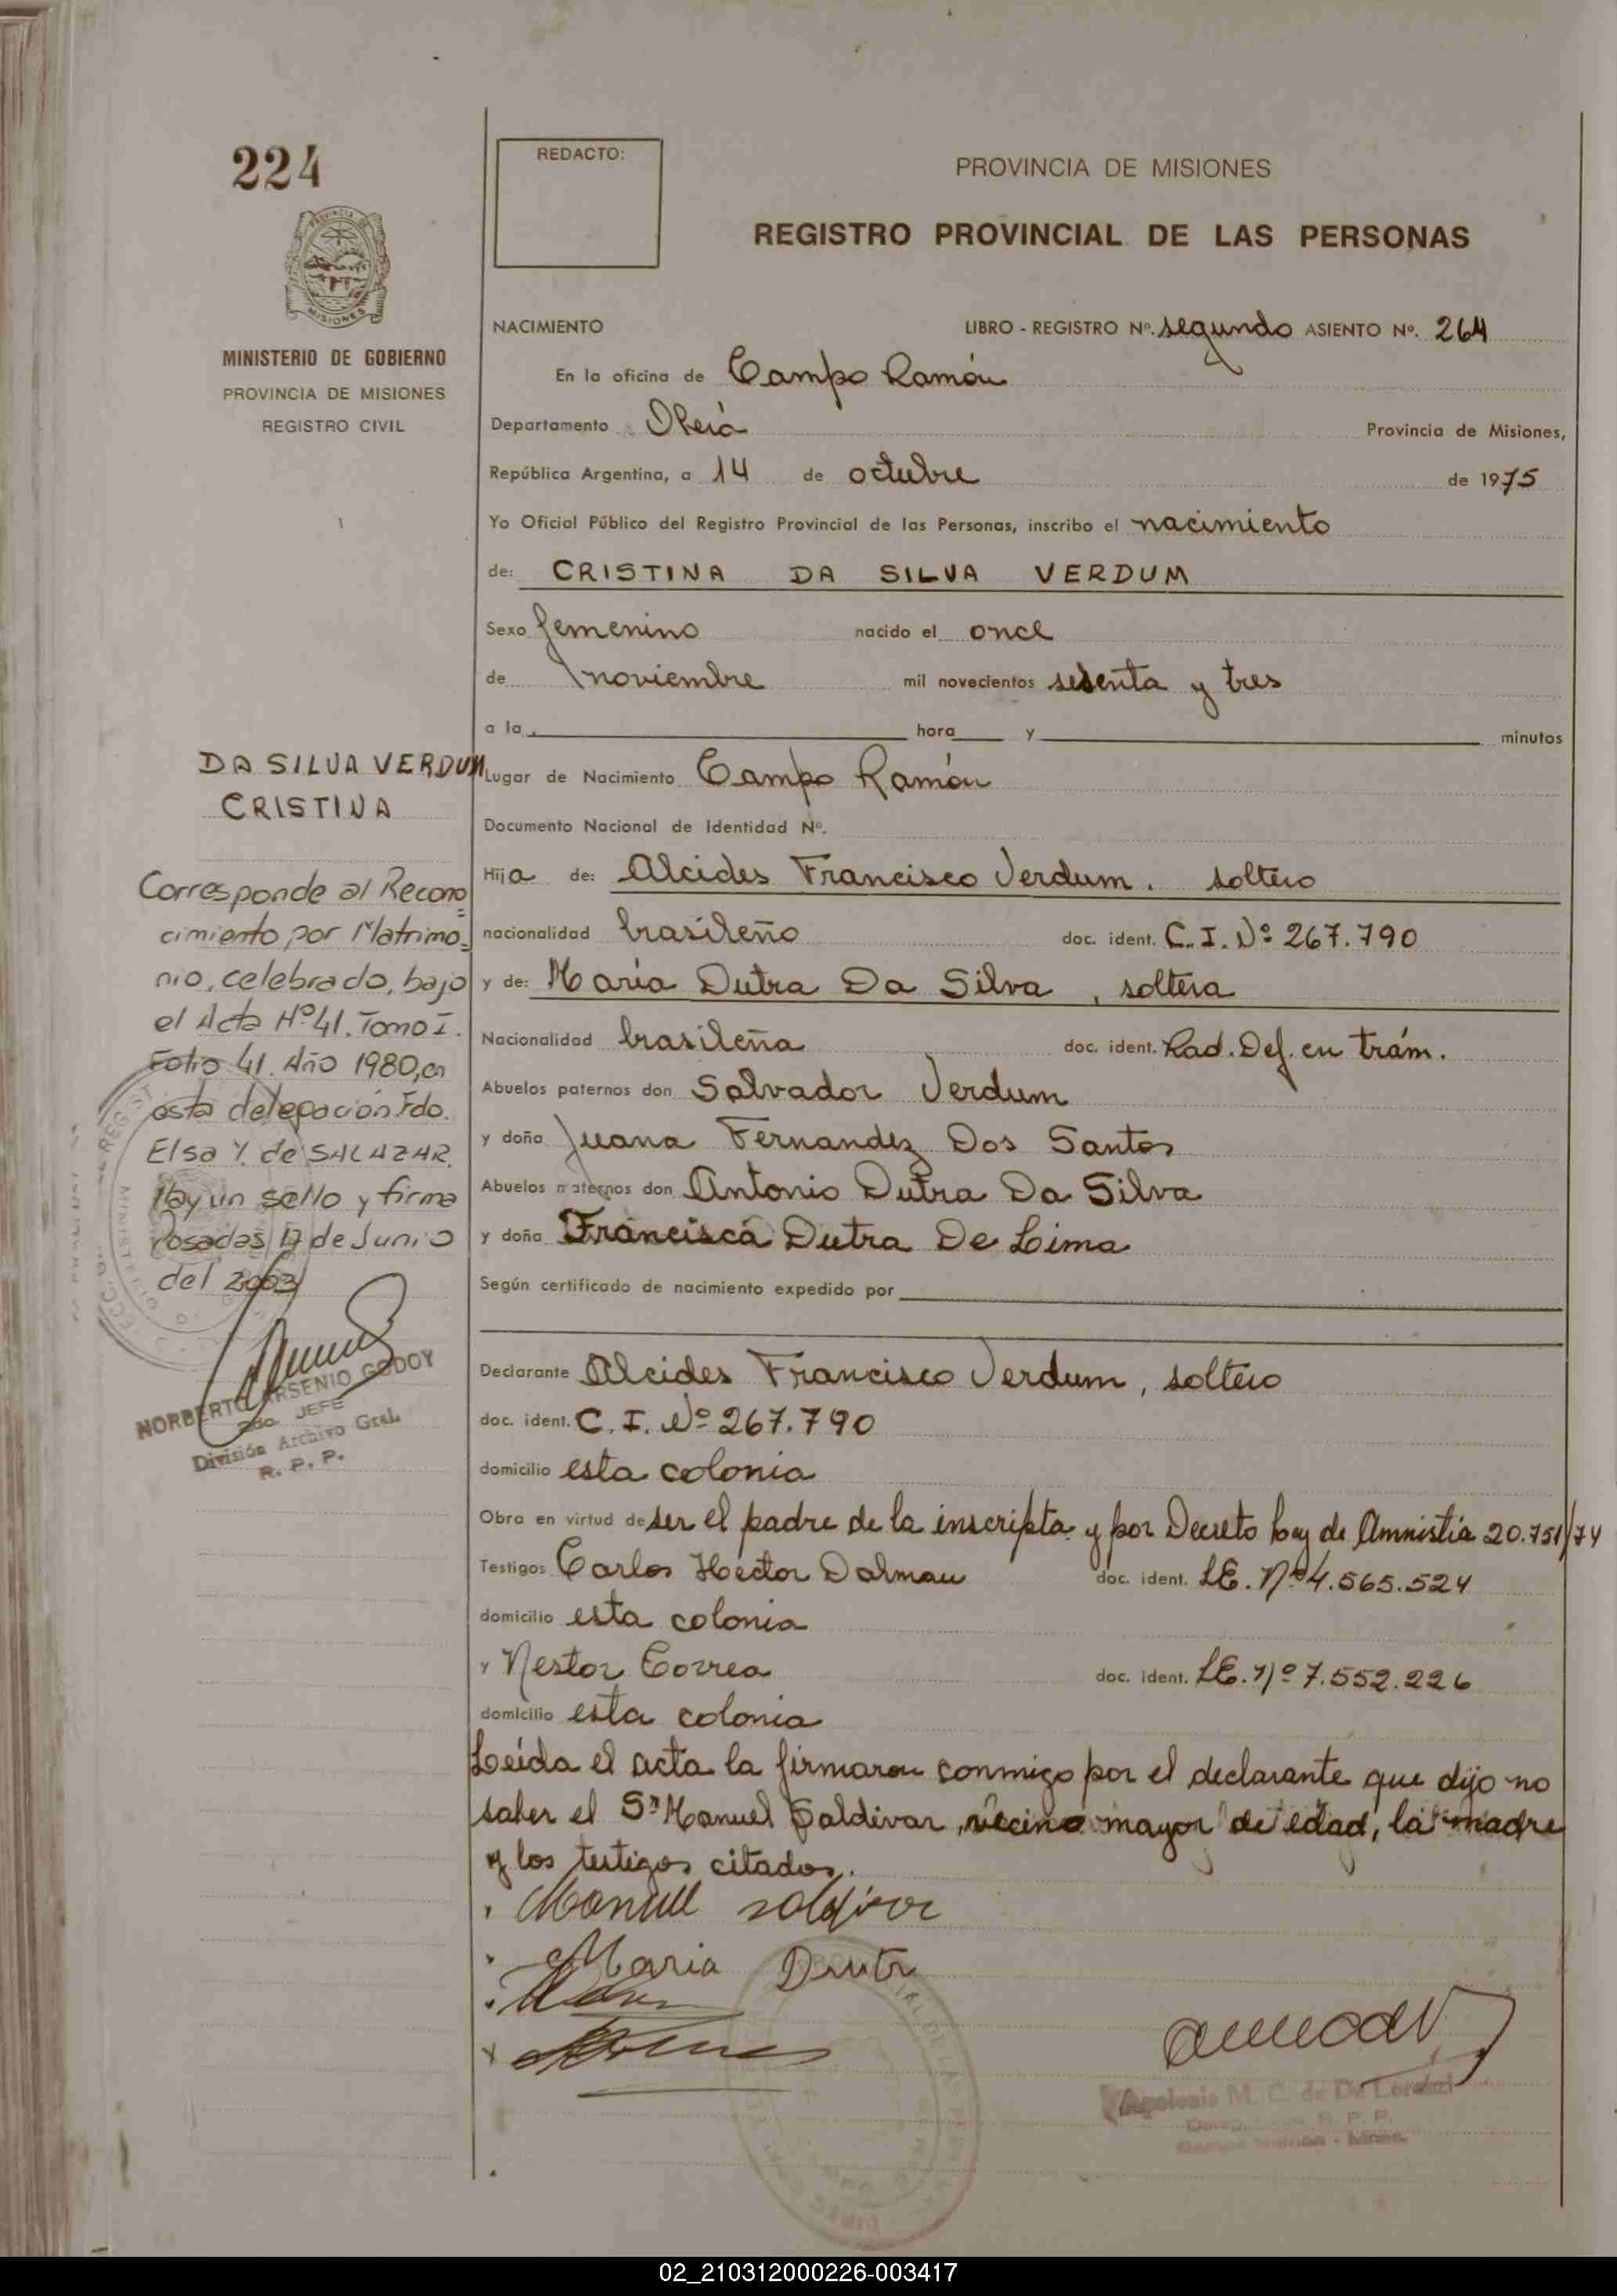 224
REDACTO:
PROVINCIA DE MISIONES
REGISTRO PROVINCIAL DE LAS PERSONAS
MINISTERIO DE GOBIERNO
PROVINCIA DE MISIONES
REGISTRO CIVIL
NACIMIENTO LIBRO - REGISTRO Nº. segundo ASIENTO Nº. 264
En la oficina de Campo Ramón
Departamento Oberá Provincia de Misiones,
República Argentina, a 14 de octubre de 1975
Yo Oficial Público del Registro Provincial de las Personas, inscribo el nacimiento
de: CRISTINA DA SILVA VERDUM
Sexo femenino nacido el once
de noviembre mil novecientos sesenta y tres
a la hora y minutos
DA SILVA VERDUM
CRISTINA
Corresponde al Recono=
cimiento por Matrimo=
nio, celebrado, bajo
el Acta Nº 41. Tomo I.
Folio 41. Año 1980, en
esta delegación Fdo.
Elsa Y. de SALAZAR.
Hay un sello y firma
Posadas 17 de Junio
del 2003
NORBERTO ARSENIO GODOY
2do. JEFE
División Archivo Gral.
R. P. P.
Lugar de Nacimiento Campo Ramón
Documento Nacional de Identidad Nº.
Hija de: Alcides Francisco Verdum. soltero
nacionalidad brasileño doc. ident. C. I. Nº 267.790
y de: María Dutra Da Silva, soltera
Nacionalidad brasileña doc. ident. Rad. Def. en trám.
Abuelos paternos don Salvador Verdum
y doña Juana Fernandez Dos Santos
Abuelos maternos don Antonio Dutra Da Silva
y doña Francisca Dutra De Lima
Según certificado de nacimiento expedido por
Declarante Alcides Francisco Verdum, soltero
doc. ident. C. I. Nº 267.790
domicilio esta colonia
Obra en virtud de ser el padre de la inscripta y por Decreto Ley de Amnistía 20.751/74
Testigos Carlos Héctor Dalmau doc. ident. LE. Nº 4.565.524
domicilio esta colonia
y Nestor Correa doc. ident. LE. Nº 7.552.226
domicilio esta colonia
Leída el acta la firmaron conmigo por el declarante que dijo no
saber el Sr Manuel Saldivar, vecino mayor de edad, la madre
y los testigos citados.
Manuel saldivar
Maria Drutr
Apolonia M. C. de De Lorenzi
02_210312000226-003417